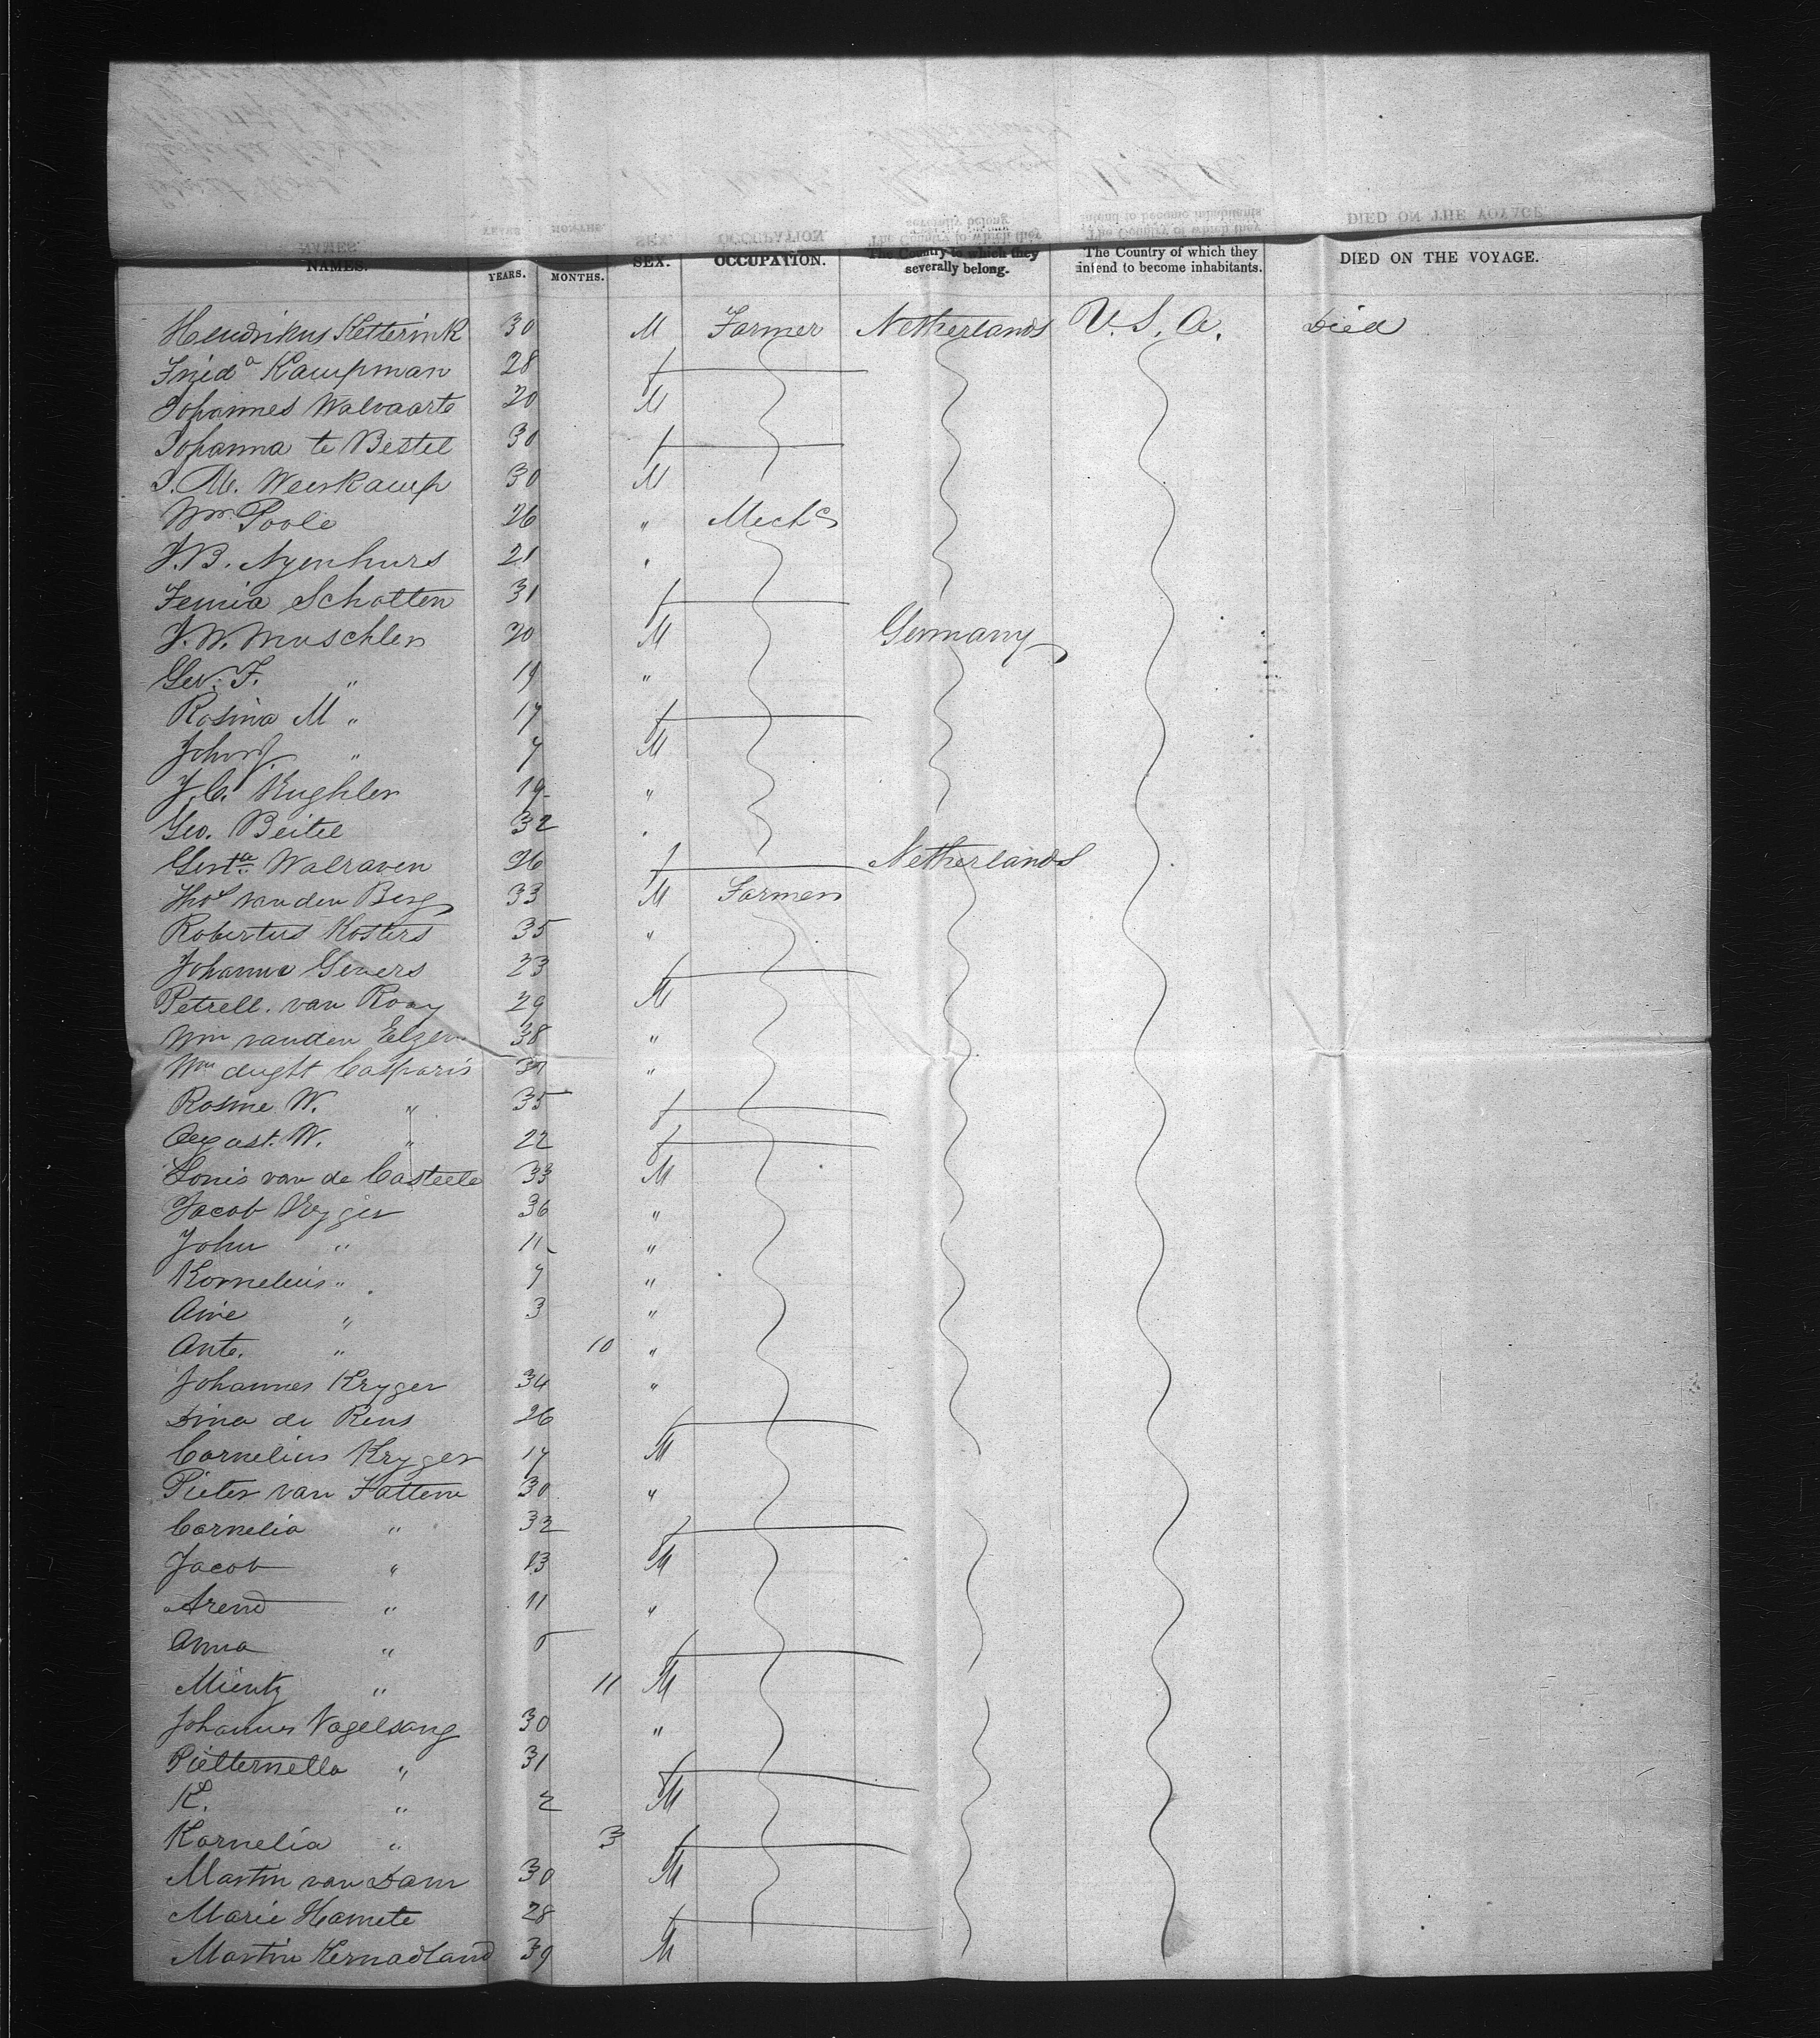 NAMES. YEARS. MONTHS. SEX. OCCUPATION. The Country to which they severally belong. The Country of which they intend to become inhabitants. DIED ON THE VOYAGE.
Hendrikus Ketterink 30 M Farmer Netherlands U.S.A. Died
Frieda Kampman 28 f
Johannes Walvaarte 20 M
Johanna te Bestel 30 f
J. M. Weerkamp 30 M
Wm Poole 26 " Mechc
J. B. Nyenhuis 21 "
Femia Scholten 31 f
J. W. Muschler 20 M Germany
Ger. F. " 19 "
Rosina M " 17 f
John J. " 7 M
J. C. Kughler 19 "
Geo. Beitel 32 "
Gerta Walraven 26 f Netherlands
Thos van den Berg 33 M Farmer
Robertus Kosters 35 "
Johanna Gevers 23 f
Petrell. van Rooy 29 M
Wm van den Elzen 38 "
Wm Casparis "
Rosine W. " 35 f
August. W. " 22 f
Louis van de Casteele 33 M
Jacob Kryger 36 "
John " 11 "
Kornelius " 7 "
Arie " 3 "
Ant. " 10 "
Johannes Kryger 34 "
Dina de Rens 26 f
Cornelius Kryger 17 M
Pieter van Hattem 30 "
Cornelia " 32 f
Jacob " 13 M
Arend " 11 "
Anna " 5 f
Mientz " 11 M
Johannes Vogelsang 30 "
Pietternella " 31 f
K. " 2 M
Kornelia " 3 f
Martin van Dam 30 M
Marie Hamete 28 f
Martin Kernadland 39 M